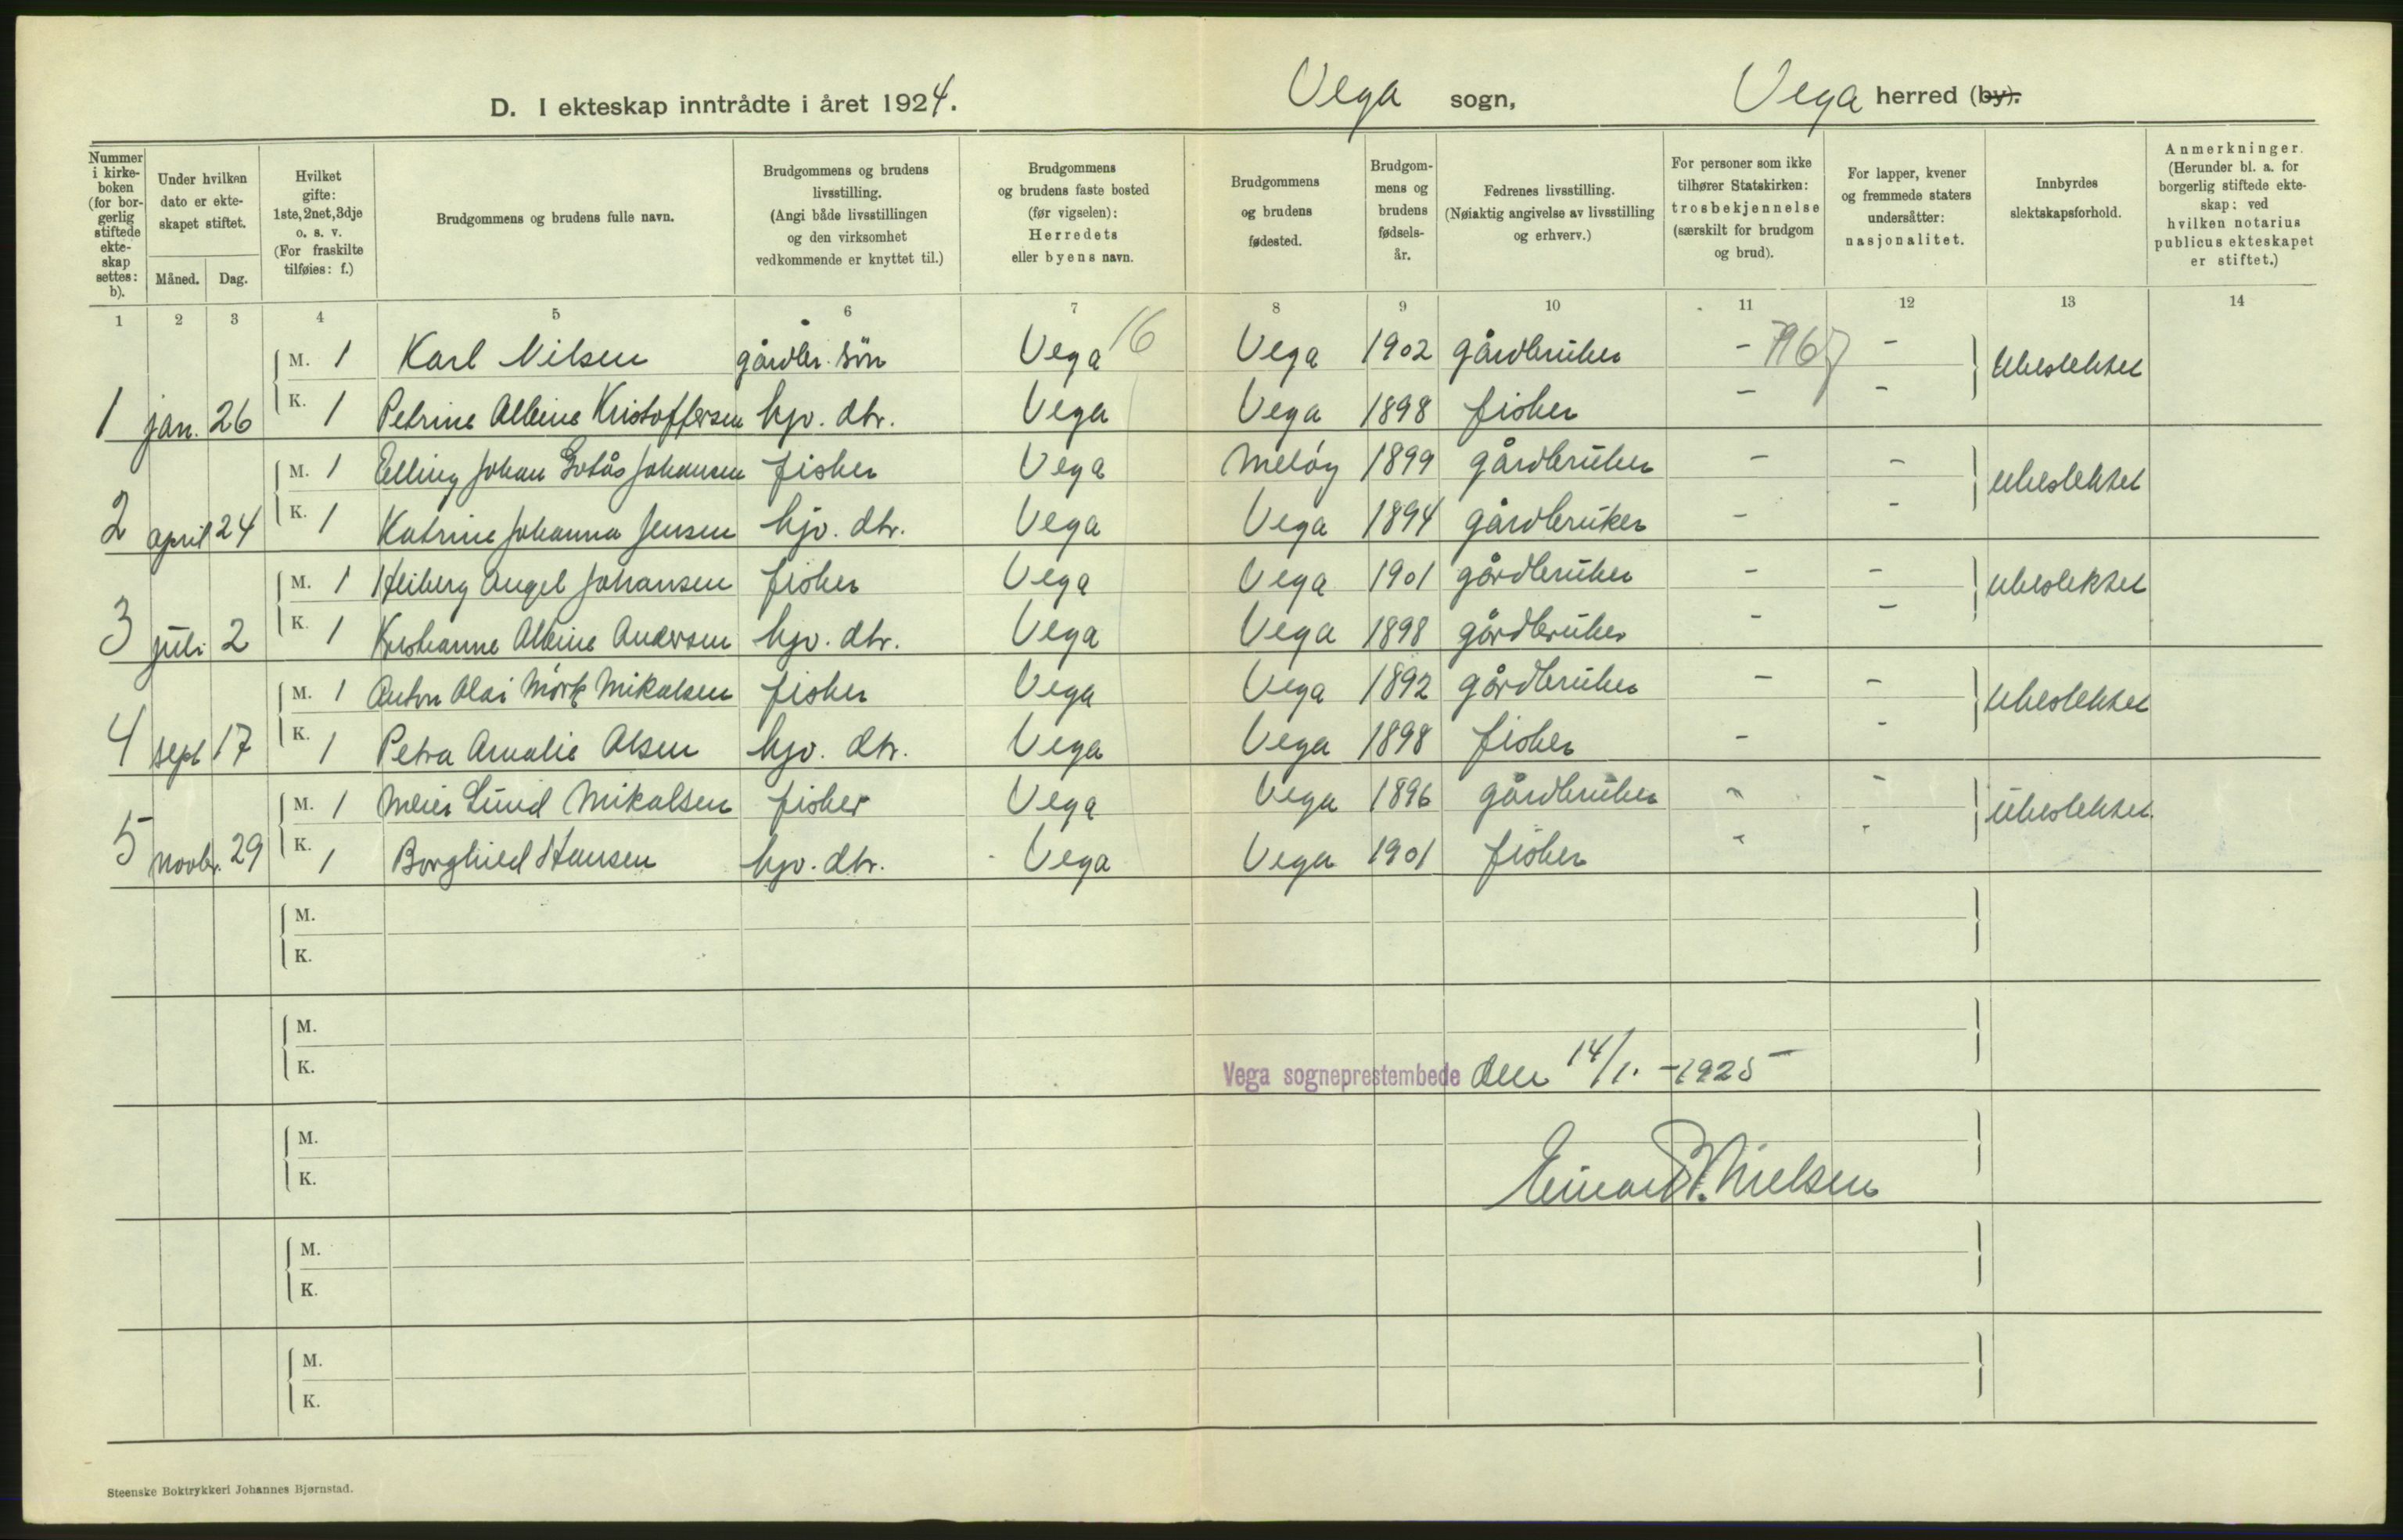 D. I ekteskap inntrådte i året 1924. Vega sogn, Vega herred (by).
Nummer i kirkeboken (for borgerlig stiftede ekteskap settes: b).
Under hvilken dato er ekteskapet stiftet.
Måned. Dag.
Hvilket gifte: 1ste, 2net, 3dje o. s. v. (For fraskilte tilføies: f.)
Brudgommens og brudens fulle navn.
Brudgommens og brudens livsstilling. (Angi både livsstillingen og den virksomhet vedkommende er knyttet til.)
Brudgommens og brudens faste bosted (før vigselen): Herredets eller byens navn.
Brudgommens og brudens fødested.
Brudgommens og brudens fødselsår.
Fedrenes livsstilling. (Nøiaktig angivelse av livsstilling og erhverv.)
For personer som ikke tilhører Statskirken: trosbekjennelse (særskilt for brudgom og brud).
For lapper, kvener og fremmede staters undersåtter: nasjonalitet.
Innbyrdes slektskapsforhold.
Anmerkninger. (Herunder bl. a. for borgerlig stiftede ekteskap: ved hvilken notarius publicus ekteskapet er stiftet.)
1 2 3 4 5 6 7 8 9 10 11 12 13 14
M. 1 Karl Nilsen gårdbr. sön Vega 16 Vega 1902 gårdbruker - - ubeslektet
1 jan. 26 K. 1 Petrine Albine Kristoffersen hjv. dtr. Vega Vega 1898 fisker - -
M. 1 Elling Johan Johansen fisker Vega Meløy 1899 gårdbruker - - ubeslektet
2 april 24 K. 1 Katrine Johanna Jensen hjv. dtr. Vega Vega 1894 gårdbruker - -
M. 1 Heiberg Angel Johansen fisker Vega Vega 1901 gårdbruker - - ubeslektet
3 juli 2 K. 1 Kristianne Albine Andersen hjv. dtr. Vega Vega 1898 gårdbruker - -
M. 1 Anton Olai Mørk Mikalsen fisker Vega Vega 1892 gårdbruker - - ubeslektet
4 sept 17 K. 1 Petra Amalie Olsen hjv. dtr. Vega Vega 1898 fisker - -
M. 1 Meier Lund Mikalsen fisker Vega Vega 1896 gårdbruker - - ubeslektet.
5 novbr. 29 K. 1 Borghild Hansen hjv. dtr. Vega Vega 1901 fisker - -
M.
K.
M.
K.
Vega sogneprestembede den 14/1. - 1925
M.
K.
Einar Nielsen
M.
K.
M.
K.
Steenske Boktrykkeri Johannes Bjørnstad.